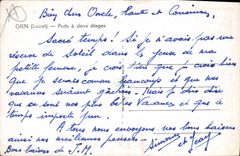 Bien chers Oncle, Tante et Cousines,
GIEN (Loiret) — Puits à deux étages
Sacré temps ! Si je n'avais pas une
réserve de soleil dans les yeux de ma
petite femme, je crois que je crois bien
que je serais beaucoup et que nos
vacances seraient gâchées. Mais je dois dire
que ce sont nos plus belles Vacances et que le
temps importe peu.
A tous nous envoyons nos bons baisers
aussi nos meilleures pensées.
Bons baisers de J.M. Simone
et Jean